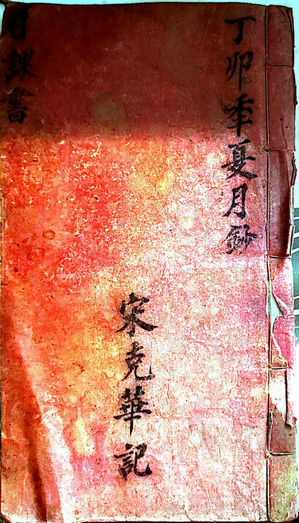 丁卯季夏月鈔
宋克華記
日課書